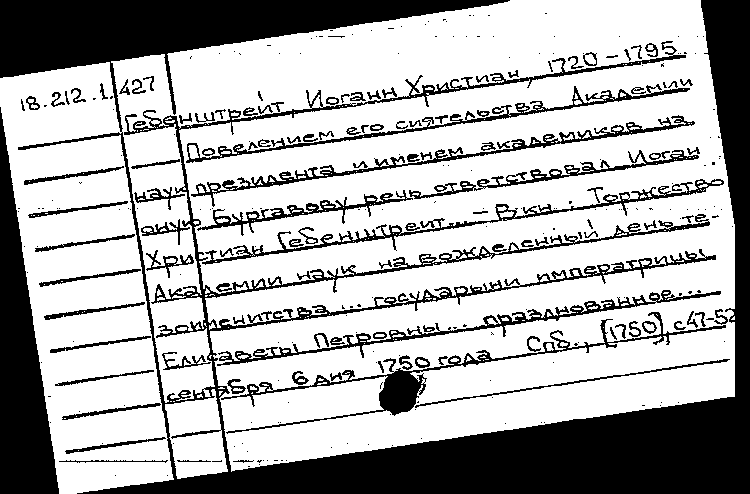 18.212.1.427
Гебенштрейт, Иоганн Христиан, 1720-1795.
Повелением его сиятельства Академии
наук президента и именем академиков на
оную Бургавову речь ответствовал Иоган
Христиан Гебенштреит... - В кн.: Торжество
Академии наук на вожделенный день те-
зоименитства... государыни императрицы
Елисаветы Петровны... празднованное...
сентября 6 дня 1750 года Спб., [1750], с 47-52